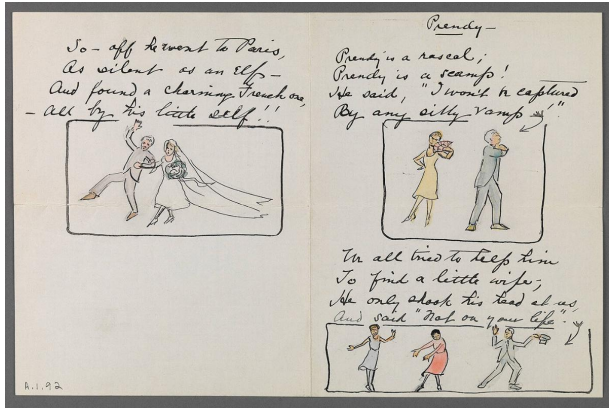 So – off he went to Paris,
As silent as an elf –
And found a charming French one,
– All by his little self!!
A.1.92
Prendy –
Prendy is a rascal;
Prendy is a scamp!
He said, "I won't be captured
By any silly vamp!"
We all tried to help him
To find a little wife;
He only shook his head at us,
And said "Not on your life".